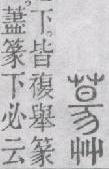 艸
下。皆複舉篆
藎篆下必云